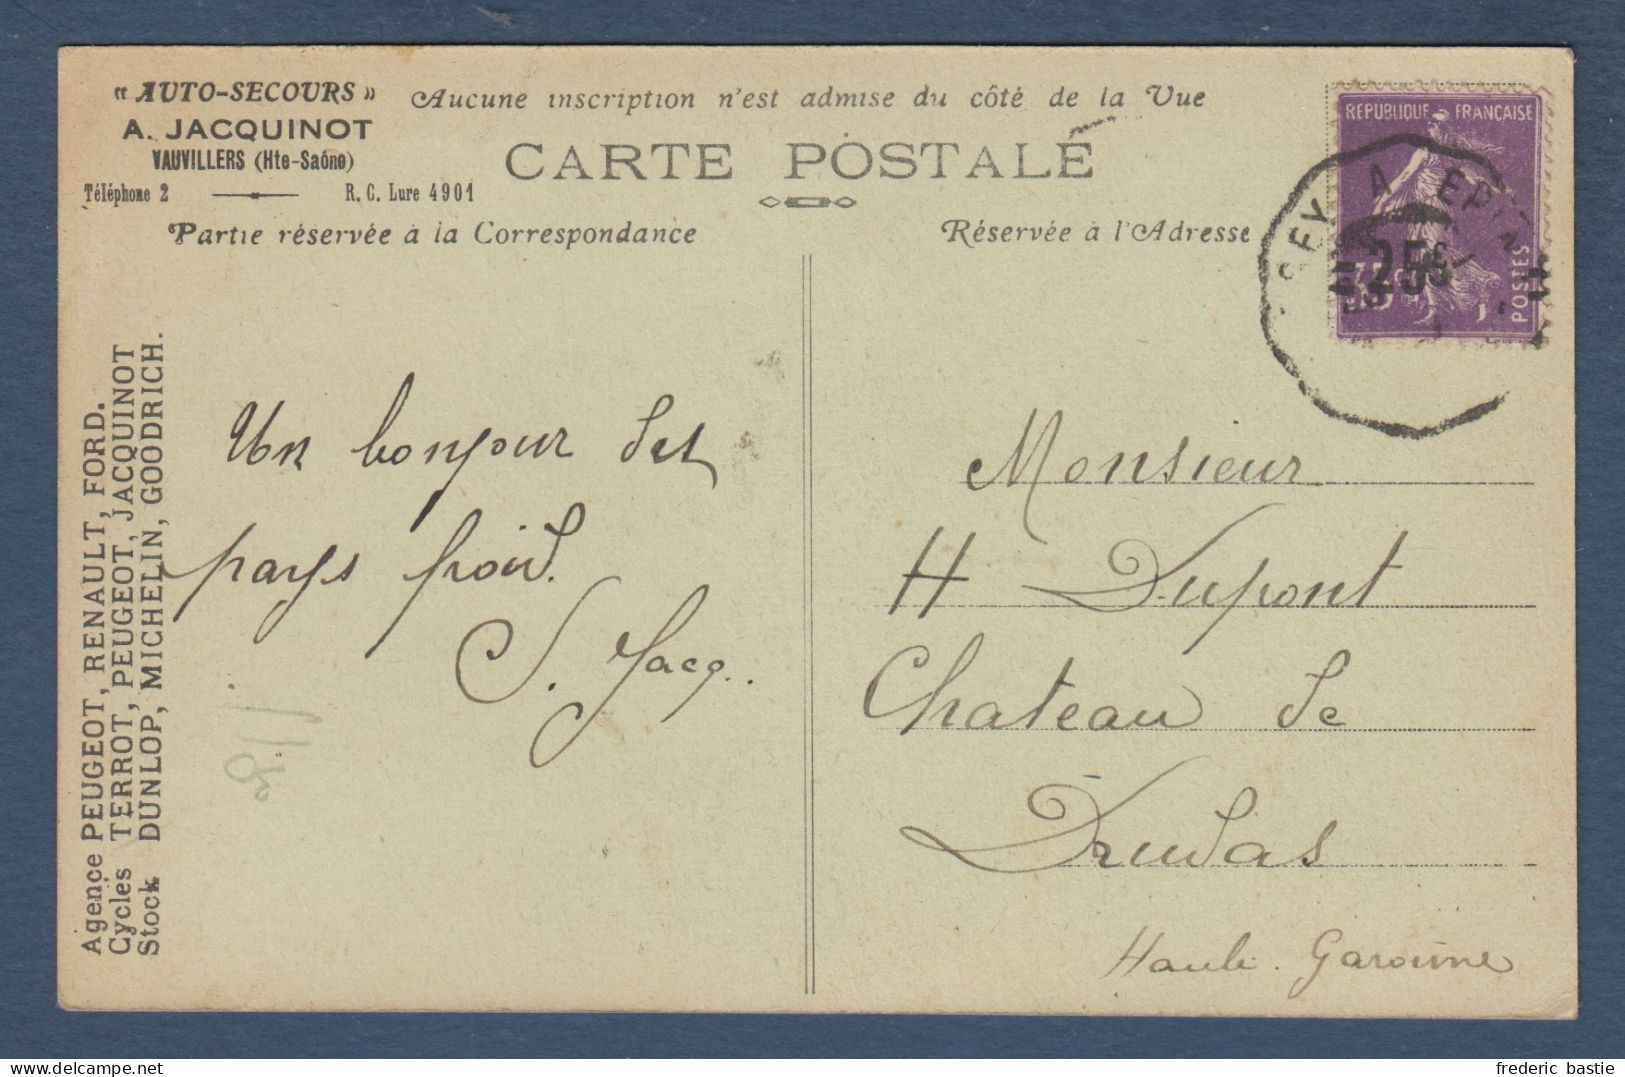 « AUTO-SECOURS »
A. JACQUINOT
VAUVILLERS (Hte-Saône)
Téléphone 2 R. C. Lure 4901
Aucune inscription n'est admise du côté de la Vue
CARTE POSTALE
Partie réservée à la Correspondance
Réservée à l'Adresse
REPUBLIQUE FRANÇAISE
POSTES
=25c
GEY A EPIN
Agence PEUGEOT, RENAULT, FORD.
Cycles TERROT, PEUGEOT, JACQUINOT
Stock DUNLOP, MICHELIN, GOODRICH.
Un bonjour des
pays froid.
J. Jacq..
Monsieur
H Dupont
Chateau de
Drudas
Haute. Garonne
frederic bastie